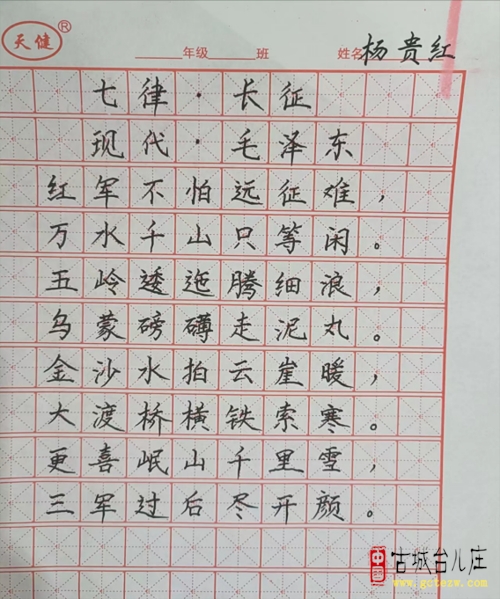 天健®
____年级____班 姓名 杨贵红
七律·长征
现代·毛泽东
红军不怕远征难，
万水千山只等闲。
五岭逶迤腾细浪，
乌蒙磅礴走泥丸。
金沙水拍云崖暖，
大渡桥横铁索寒。
更喜岷山千里雪，
三军过后尽开颜。
中国 古城台儿庄
www.gctezw.com